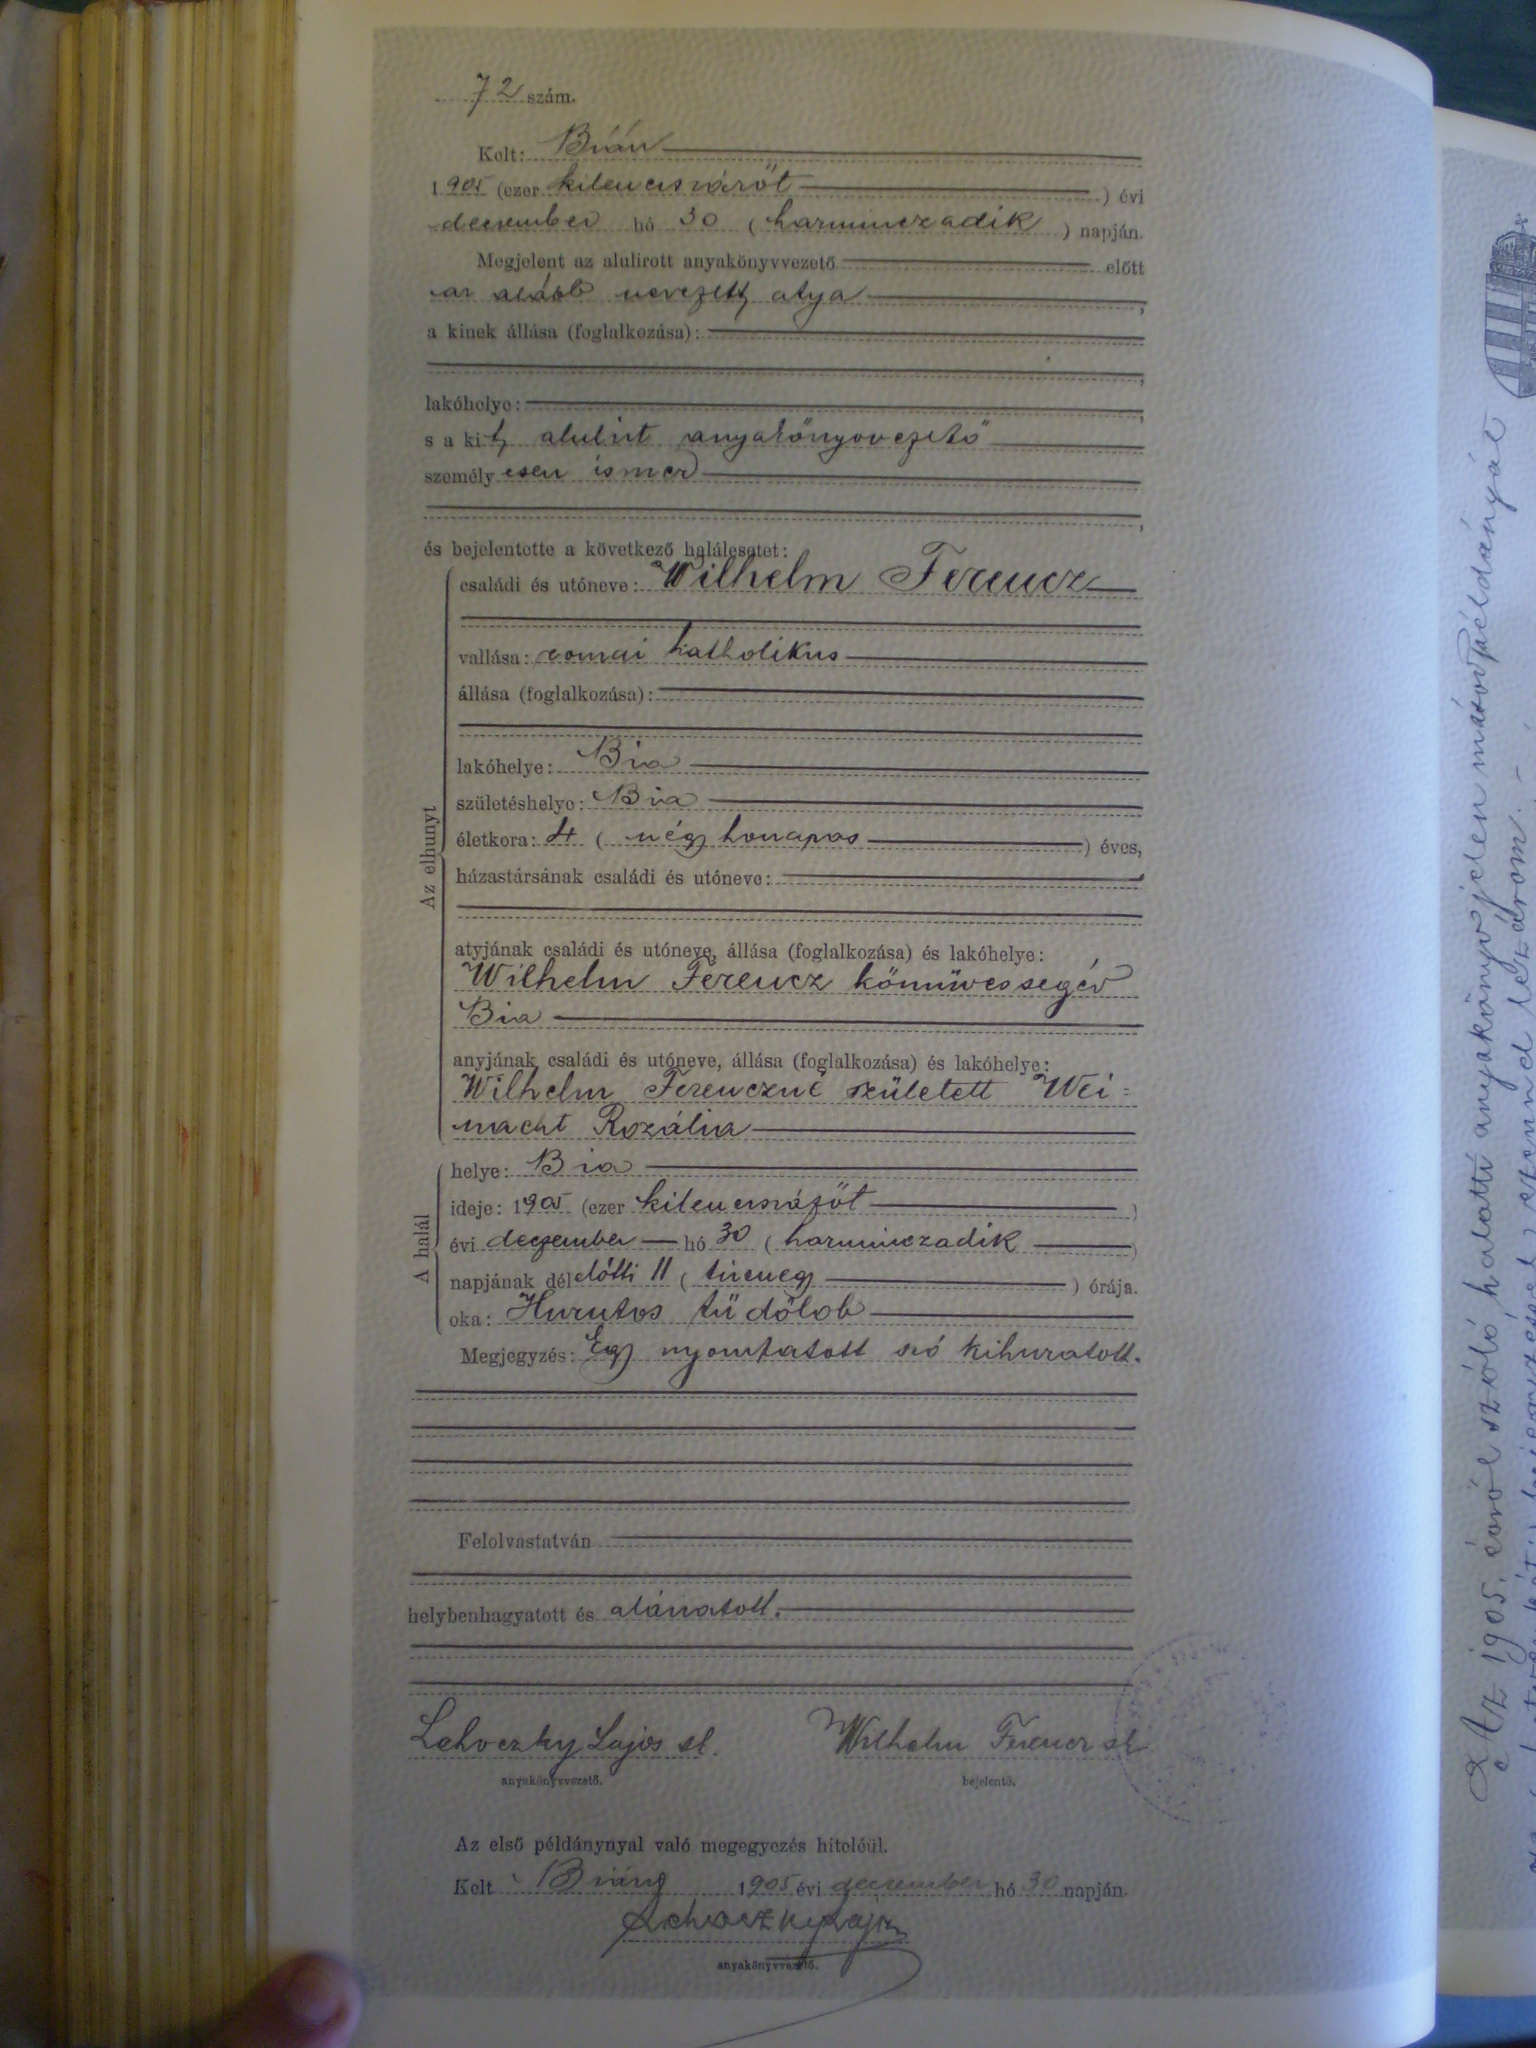 72 szám.
Kelt: Bián
1905 (ezer kilenczszázöt) évi
deczember hó 30 (harminczadik) napján.
Megjelent az alulirott anyakönyvvezető előtt
az alább nevezett atya,
a kinek állása (foglalkozása):
lakóhelye:
s a kit, alulirt anyakönyvvezető
személyesen ismer
és bejelentette a következő halálesetet:
Az elhunyt
családi és utóneve: Wilhelm Ferencz
vallása: romai katholikus
állása (foglalkozása):
lakóhelye: Bia
születéshelye: Bia
életkora: 4 (négy honapos) éves,
házastársának családi és utóneve:
atyjának családi és utóneve, állása (foglalkozása) és lakóhelye:
Wilhelm Ferencz kőmüvessegéd
Bia
anyjának családi és utóneve, állása (foglalkozása) és lakóhelye:
Wilhelm Ferenczné született Wei=
nacht Rozália
A halál
helye: Bia
ideje: 1905 (ezer kilenczszázöt)
évi deczember hó 30 (harminczadik)
napjának délelőtti 11 (tizenegy) órája.
oka: Hurutos tüdőlob
Megjegyzés: Egy nyomtatott szó kihuzatott.
Felolvastatván
helybenhagyatott és aláiratott.
Lehoczky Lajos sk. Wilhelm Ferencz sk
anyakönyvvezető. bejelentő.
Az első példánynyal való megegyezés hiteléül.
Kelt Bián, 1905 évi deczember hó 30 napján.
Lehoczky Lajos
anyakönyvvezető.
Az 1905. évről szóló halotti anyakönyv jelen másodpéldányát